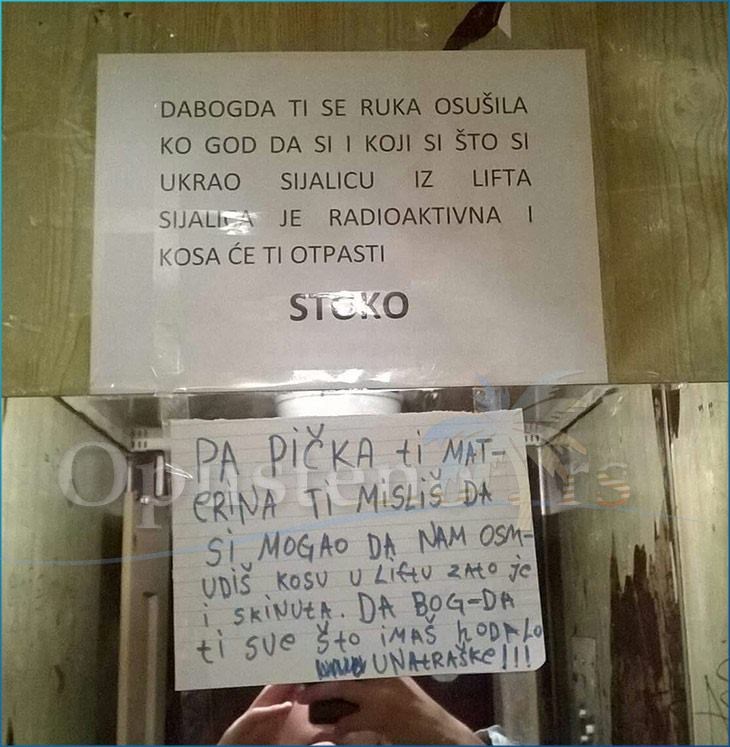 DABOGDA TI SE RUKA OSUŠILA
KO GOD DA SI I KOJI SI ŠTO SI
UKRAO SIJALICU IZ LIFTA
SIJALICA JE RADIOAKTIVNA I
KOSA ĆE TI OTPASTI
STOKO
PA PIČKA ti MAT-
ERINA TI MISLIŠ DA
Si MOGAO DA NAM OSM-
UDIŠ KOSU U LiftU ZATO je
i SKINUtA. DA BOG-DA
ti SVE ŠtO iMAŠ hODALO
UNAtRAŠKE!!!
Opusteno.rs